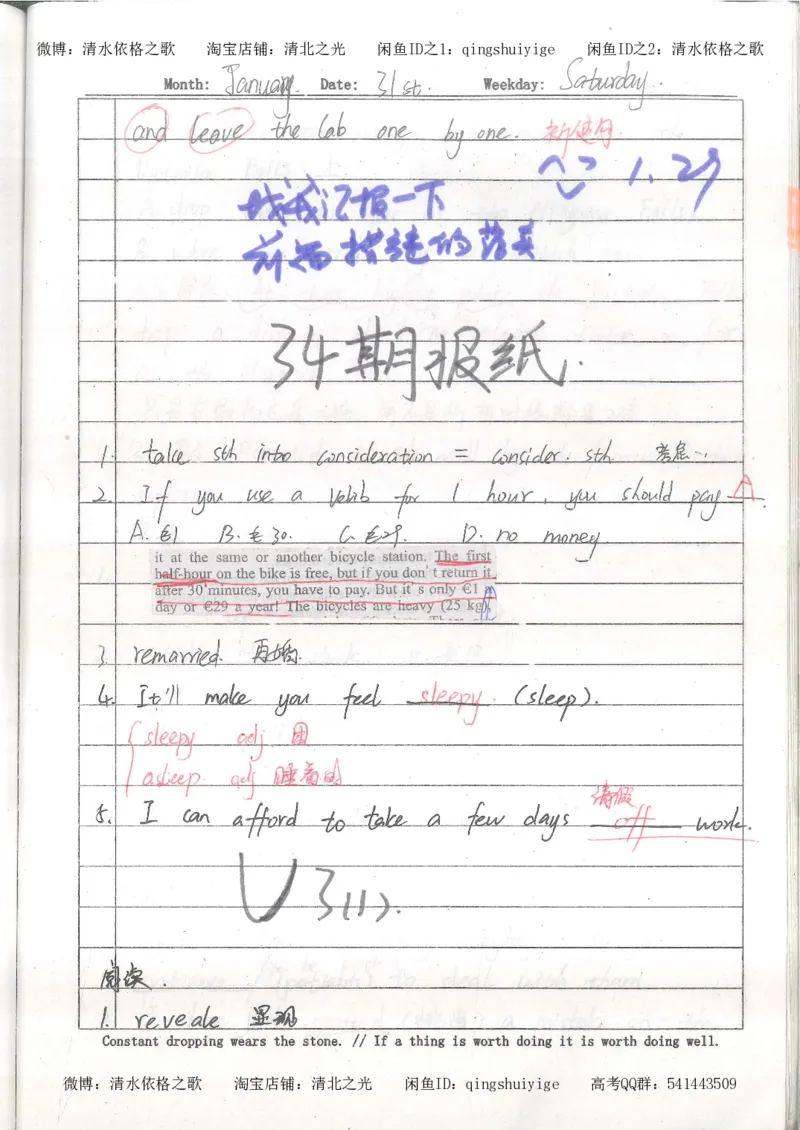 微博：清水依格之歌 淘宝店铺：清北之光 闲鱼ID之1：qingshuiyige 闲鱼ID之2：清水依格之歌
Month: January. Date: 31st. Weekday: Saturday.
and leave the lab one by one.
1.29
找我记报一下
前面搭建的落
34期报纸.
1. take sth into consideration = consider. sth 考虑…
2. If you use a Velib for 1 hour, you should pay A.
A. €1 B. €30. C. €29. D. no money.
it at the same or another bicycle station. The first
half-hour on the bike is free, but if you don't return it
after 30 minutes, you have to pay. But it's only €1 a
day or €29 a year! The bicycles are heavy (25 kg),
3. remarried. 再婚.
4. It'll make you feel sleepy. (sleep).
sleepy adj 困
asleep. adj 睡着的
请假
5. I can afford to take a few days off work.
U3(1).
阅读.
1. reveale 显现
Constant dropping wears the stone. // If a thing is worth doing it is worth doing well.
微博：清水依格之歌 淘宝店铺：清北之光 闲鱼ID：qingshuiyige 高考QQ群：541443509